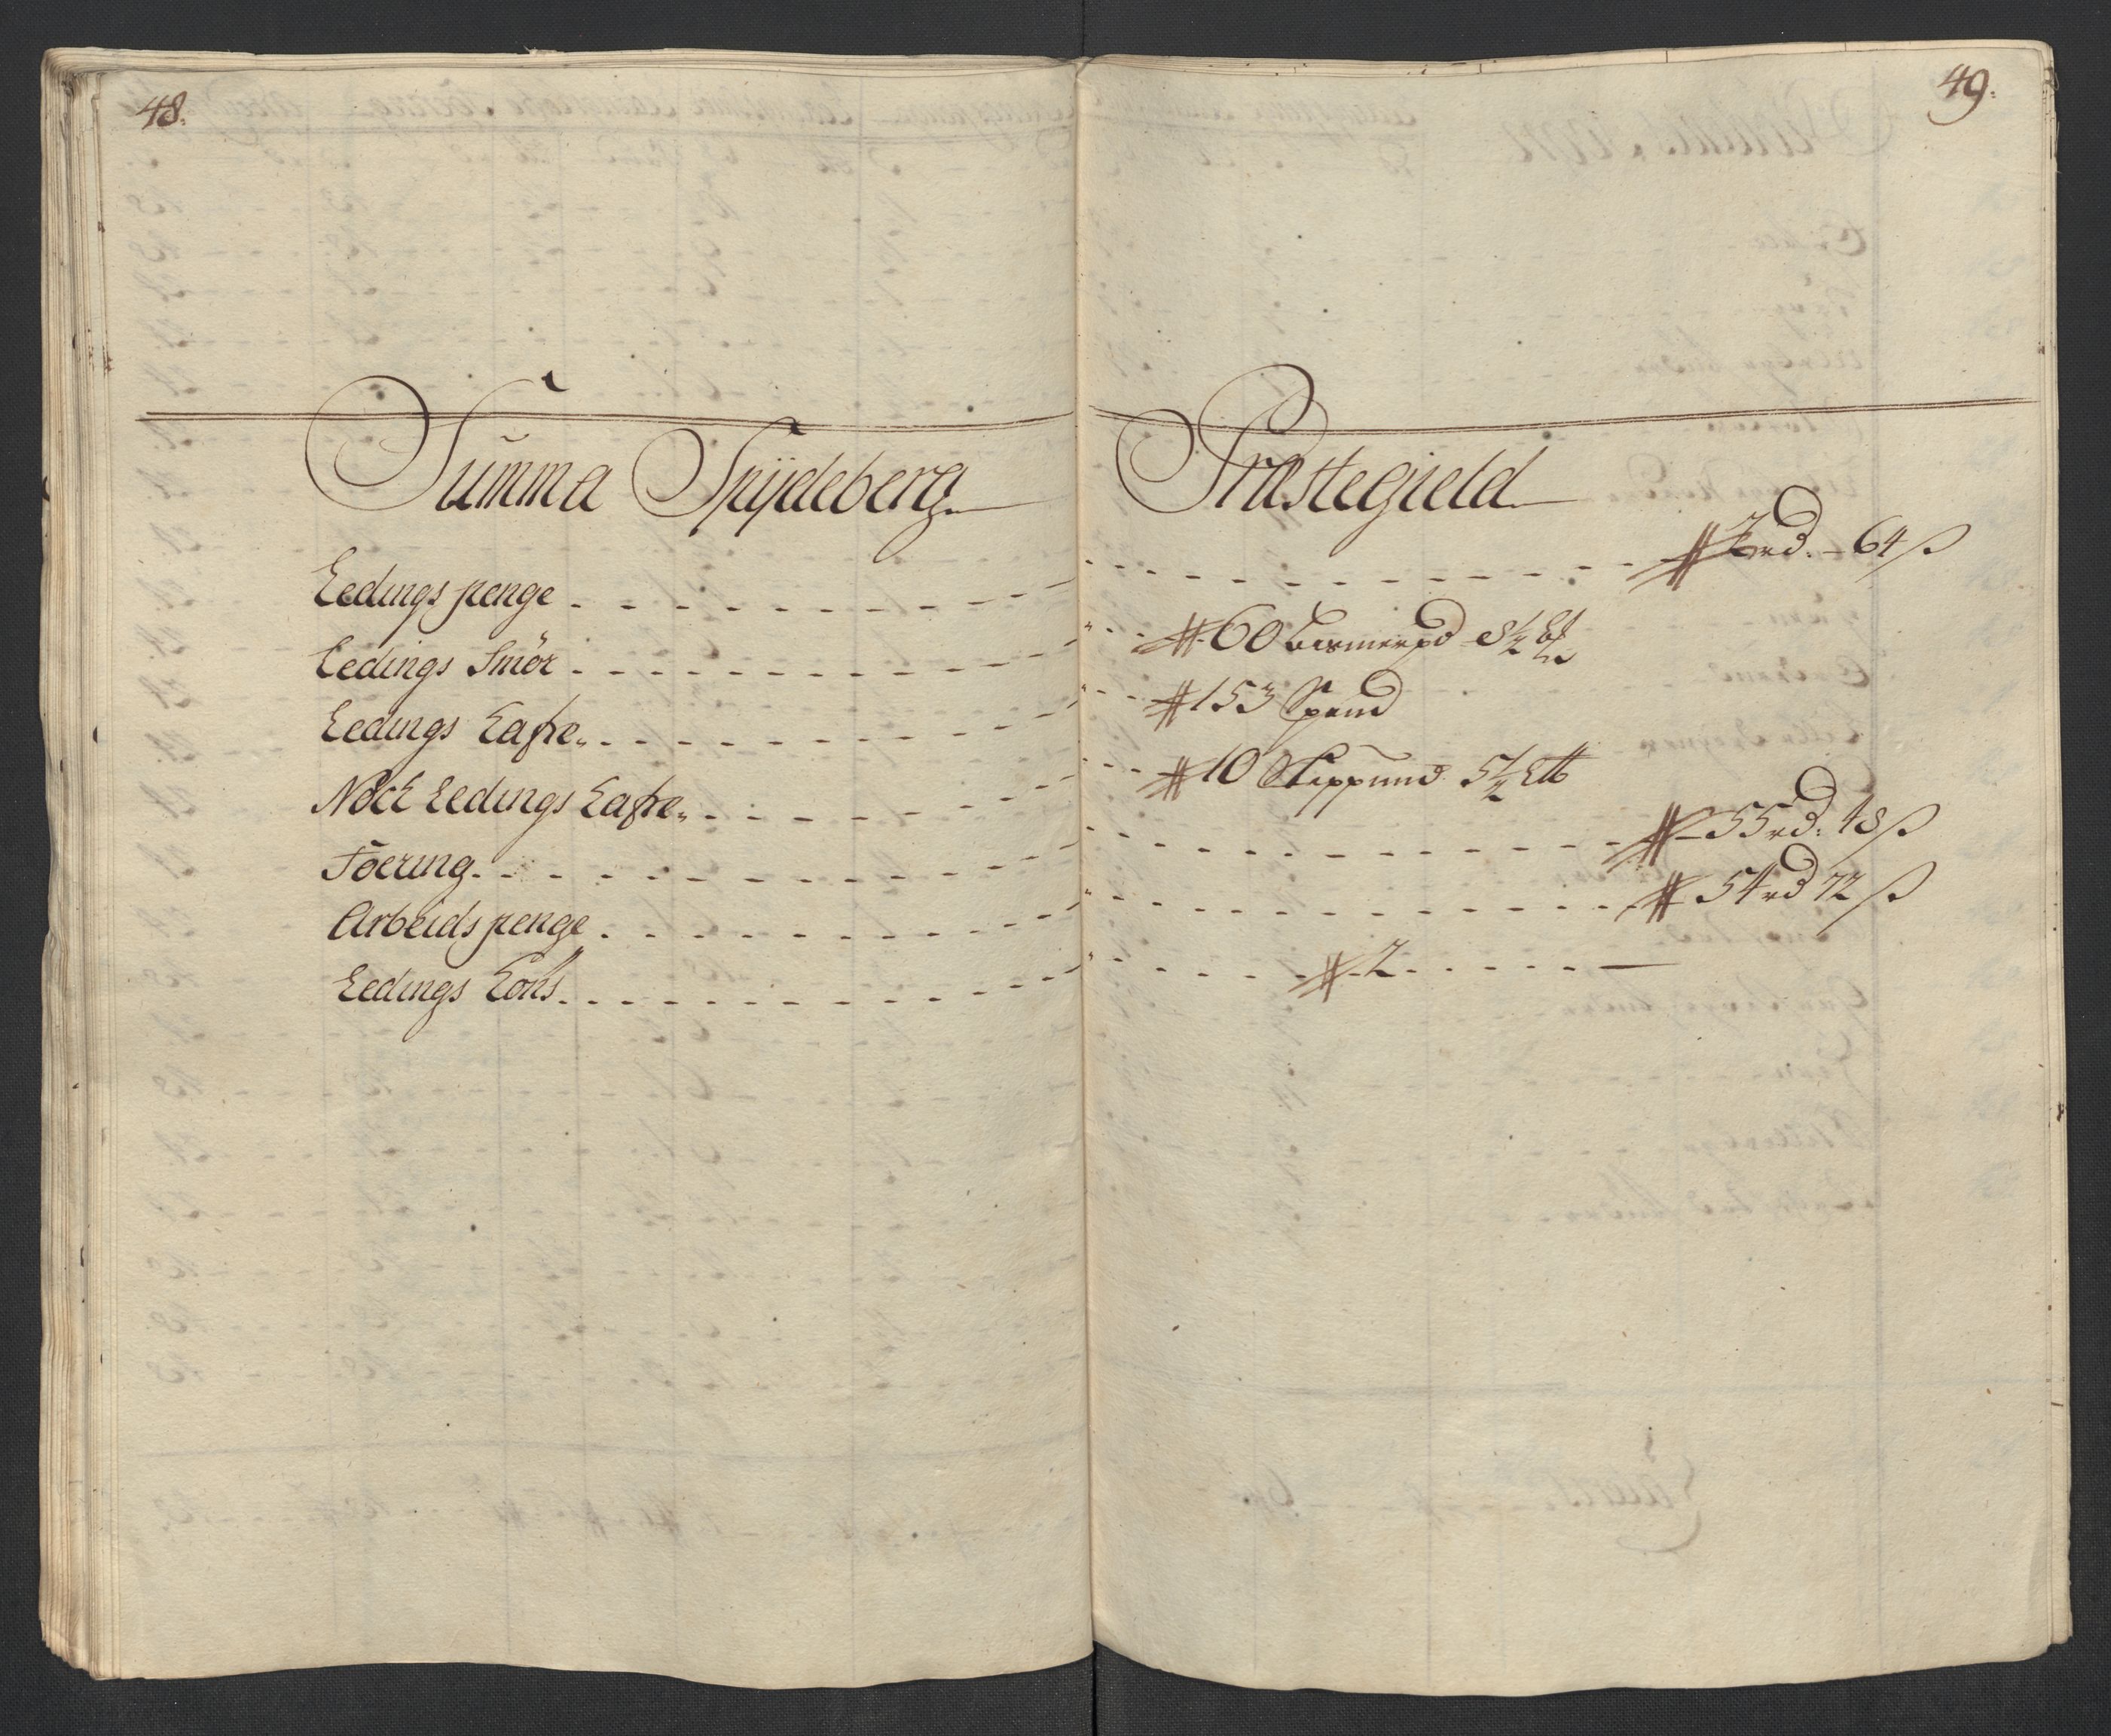 48.
49.
Summa Spÿdeberg Præstegield
Ledings penge - - - # 7 rd. - 64 ß
Ledings Smör - - - # 60 bismerpd 8½ ℔
Ledings Hafre - - - # 153 Spand
Noch Ledings Hafre - - - # 10 Skippund 5½ L℔
Foering - - - # 55 rd: 48 ß
Arbeids penge - - - # 54 rd 72 ß
Ledings - - - # 2 - - -